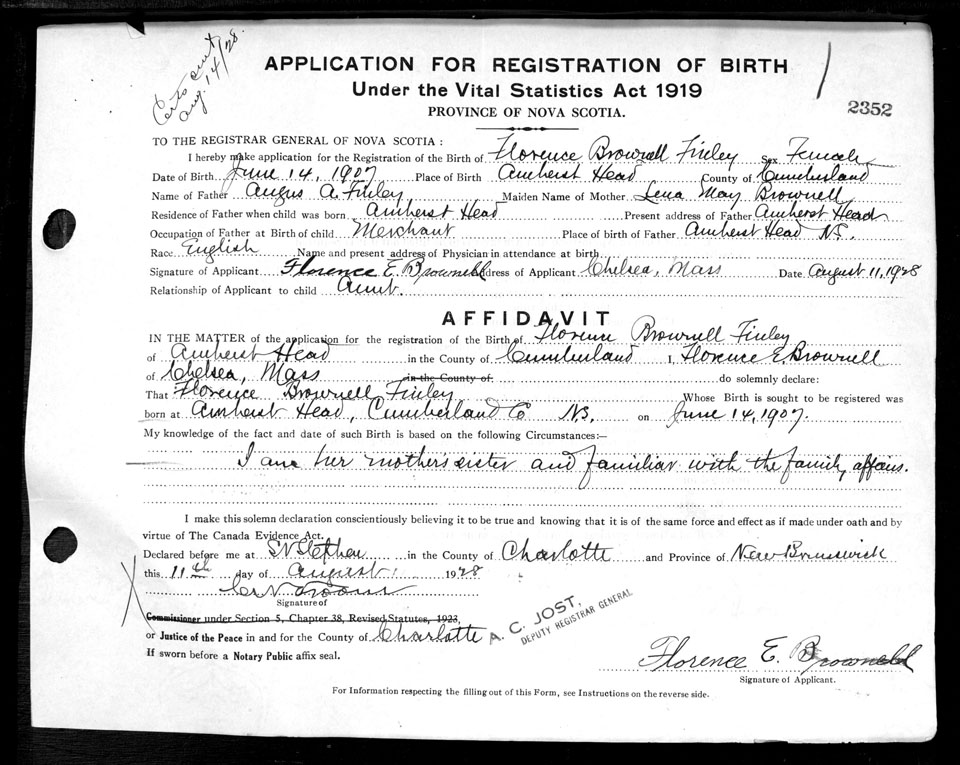 Certs sent
Aug. 14/28.
APPLICATION FOR REGISTRATION OF BIRTH
Under the Vital Statistics Act 1919
PROVINCE OF NOVA SCOTIA.
2352
TO THE REGISTRAR GENERAL OF NOVA SCOTIA:
I hereby make application for the Registration of the Birth of Florence Brownell Finley Sex Female
Date of Birth June 14, 1907 Place of Birth Amherst Head County of Cumberland
Name of Father Angus A. Finley Maiden Name of Mother Lena May Brownell
Residence of Father when child was born Amherst Head Present address of Father Amherst Head
Occupation of Father at Birth of child Merchant Place of birth of Father Amherst Head N.S.
Race English Name and present address of Physician in attendance at birth
Signature of Applicant Florence E. Brownell Address of Applicant Chelsea, Mass Date August 11, 1928
Relationship of Applicant to child Aunt.
AFFIDAVIT
IN THE MATTER of the application for the registration of the Birth of Florence Brownell Finley
of Amherst Head in the County of Cumberland I, Florence E. Brownell
of Chelsea, Mass in the County of do solemnly declare:
That Florence Brownell Finley Whose Birth is sought to be registered was
born at Amherst Head, Cumberland Co N.S. on June 14, 1907.
My knowledge of the fact and date of such Birth is based on the following Circumstances:—
I am her mother's sister and familiar with the family affairs.
I make this solemn declaration conscientiously believing it to be true and knowing that it is of the same force and effect as if made under oath and by
virtue of The Canada Evidence Act.
Declared before me at St Stephen in the County of Charlotte and Province of New Brunswick
this 11th day of August 1928
Signature of
Commissioner under Section 5, Chapter 38, Revised Statutes, 1923,
or Justice of the Peace in and for the County of Charlotte
A. C. JOST,
DEPUTY REGISTRAR GENERAL
If sworn before a Notary Public affix seal.
Florence E. Brownell
Signature of Applicant.
For Information respecting the filling out of this Form, see Instructions on the reverse side.